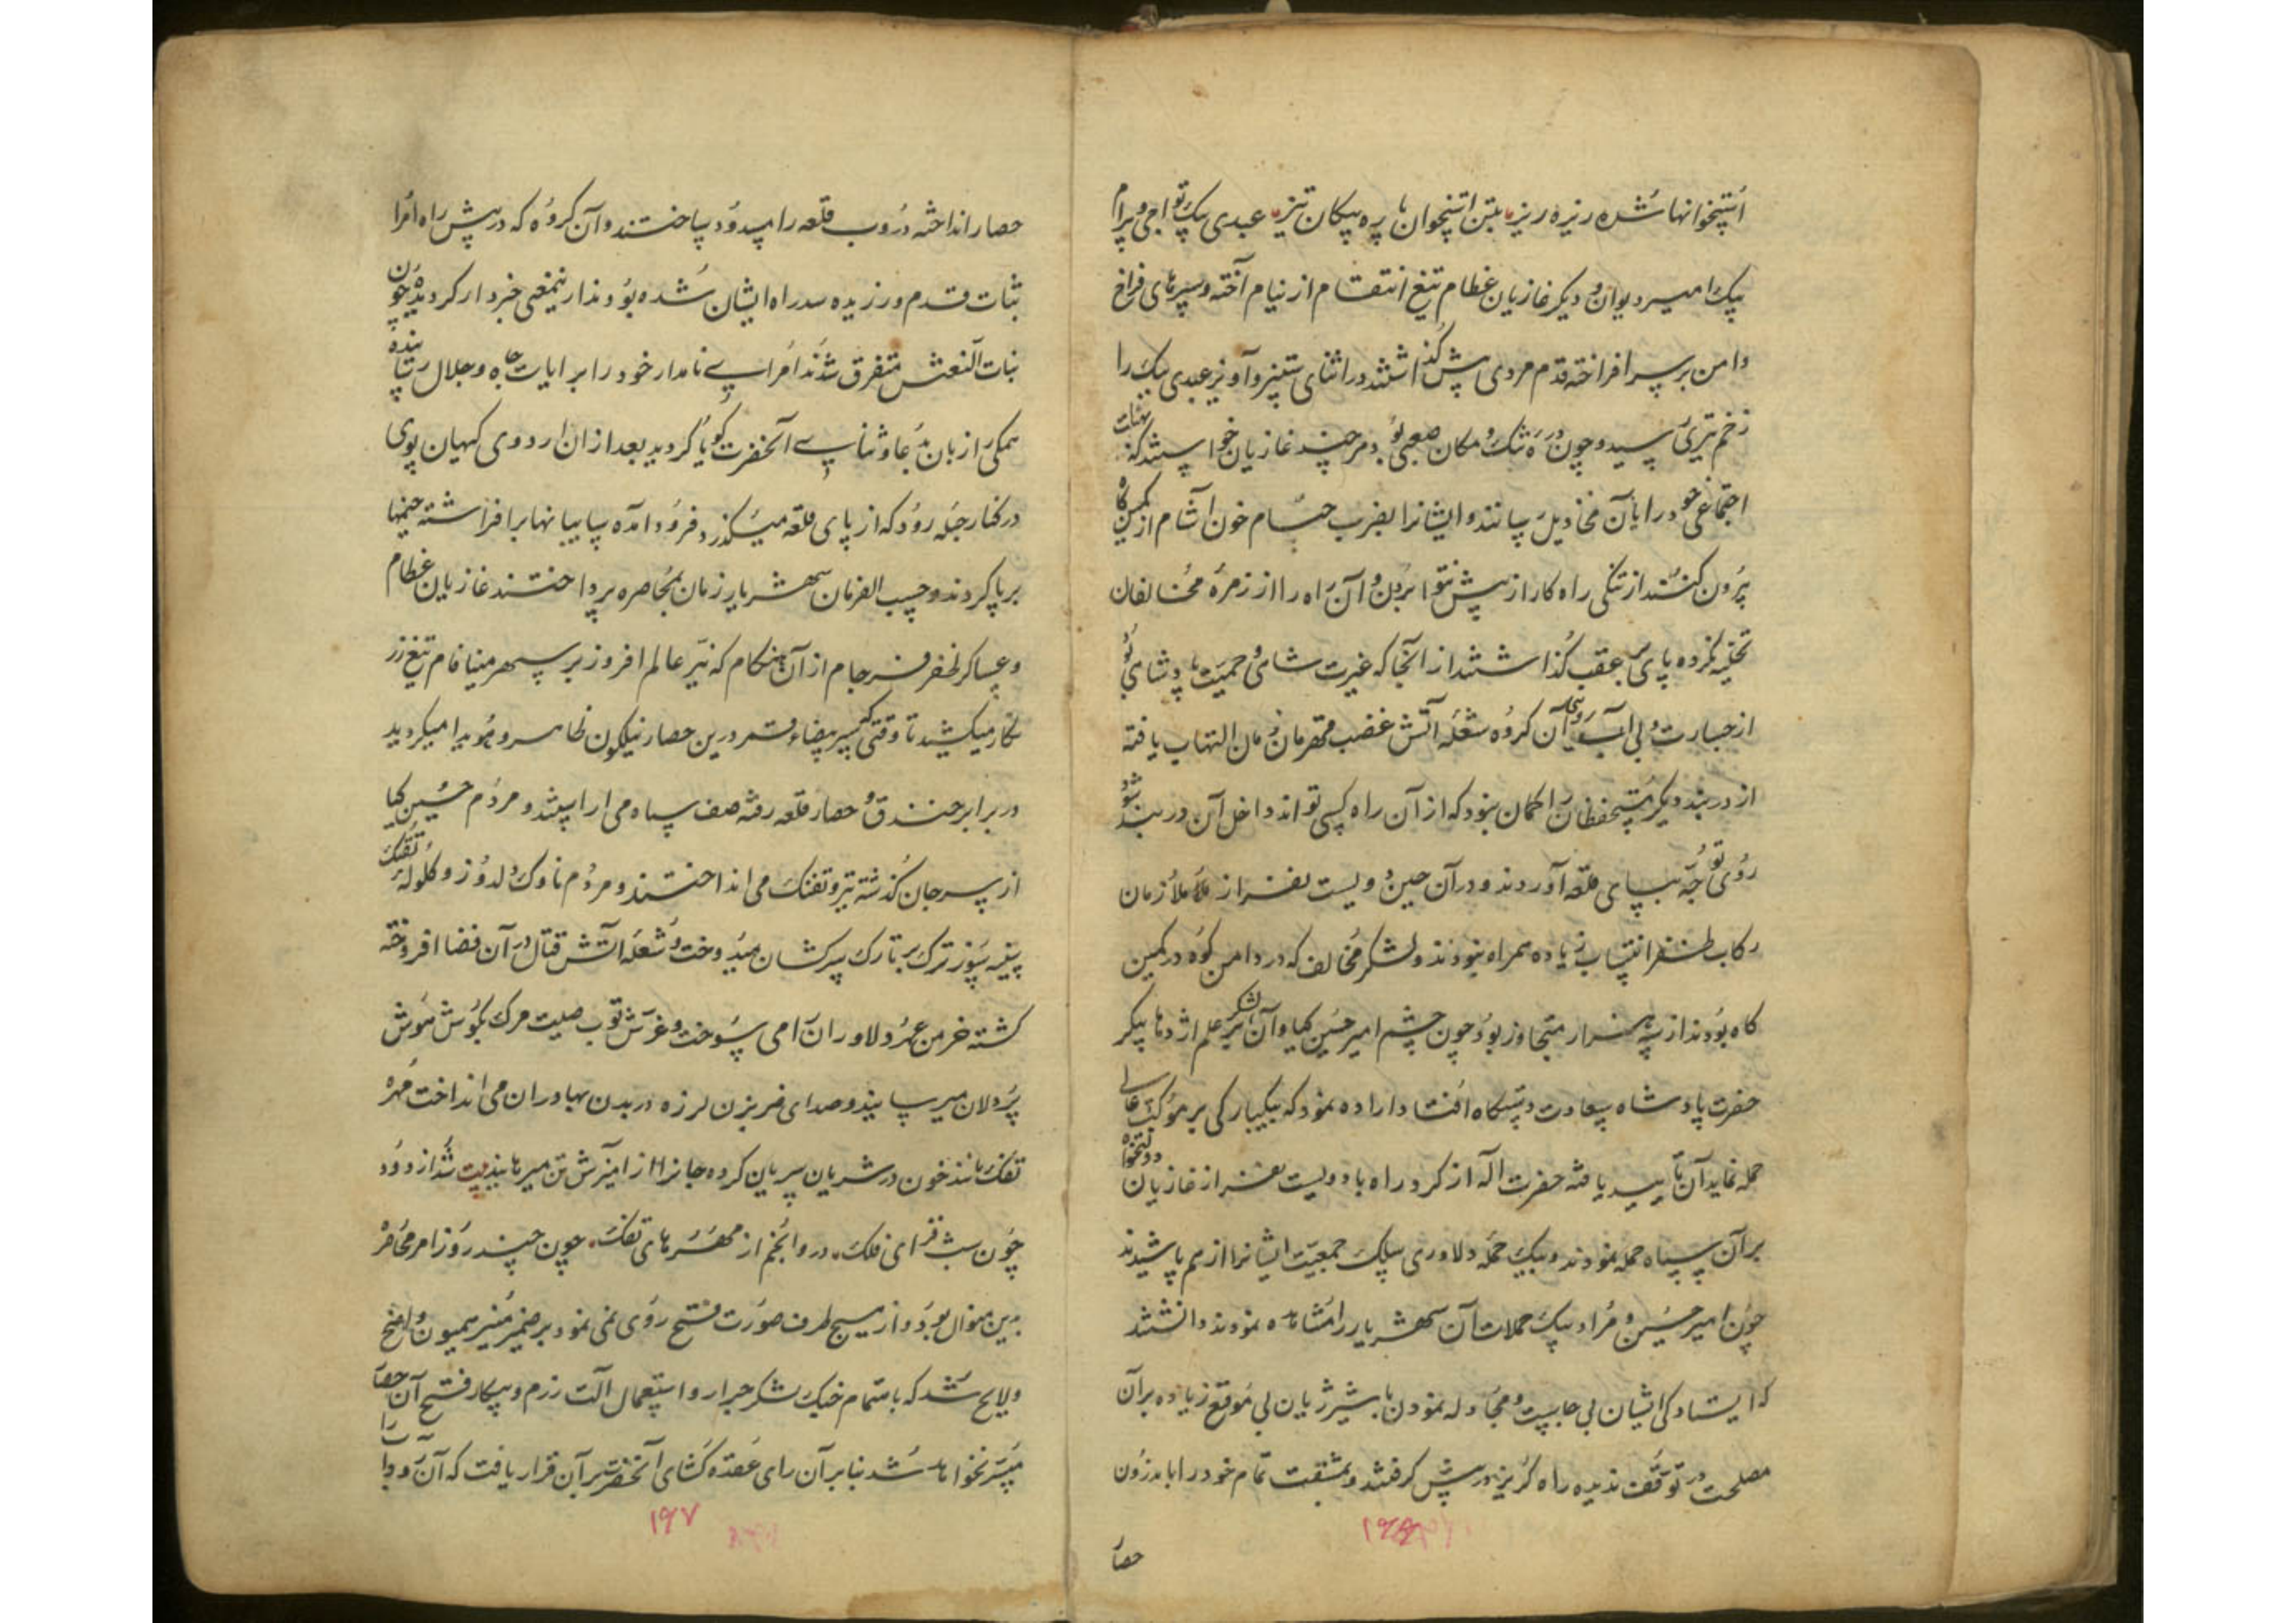 استخوانها شده ریزه ریزه بتن استخوان پره پیکان تیز عبدی بیک تواجی و بیرام
بیک امیر دیوان و دیگر غازیان عظام تیغ انتقام از نیام آخته و سپرهای فراخ
دامن بر سر افراخته قدم مردی پیش گذاشتند در اثنای ستیز و آویز عبدی بیک را
زخم تیری رسید و چون دره تنگ و مکان صعبی بود هر چند غازیان خواستند که بهیات
اجتماعی خود را بآن مخاذیل رسانند و ایشانرا بضرب حسام خون آشام از کمین گاه
بیرون کنند از تنگی راه کار از پیش نتوانستند بردن و آن راه را از زمره مخالفان
تخلیه نکرده پای بر عقب گذاشتند از آنجا که غیرت شاهی و حمیت پادشاهی بود
از جسارت و بی آب رویی آن گروه شعله آتش غضب قهرمان زمان التهاب یافته
از دربند دیگر که مستحفظان را گمان نبود که از آن راه کسی تواند داخل آن دربند شود
روی توجه بپای قلعه آوردند و در آن حین دویست نفر از ملازمان
رکاب ظفر انتساب زیاده همراه نبودند و لشکر مخالف که در دامن کوه در کمین
گاه بودند از سه هزار متجاوز بود چون چشم امیر حسین کیا و آن لشکر بر علم اژدها پیکر
حضرت پادشاه سعادت دستگاه افتاد اراده نمود که بیکبارگی بر موکب عالی
حمله نماید آن تایید یافته حضرت اله از گرد راه با دویست نفر از غازیان دولتخواه
بر آن سپاه حمله نمودند و بیک حمله دلاوری سلک جمعیت ایشانرا از هم پاشیدند
چون امیر حسین و مراد بیک حملات آن شهریار را مشاهده نمودند دانستند
که ایستادگی ایشان بی حاصلست و مجادله نمودن با شیر ژیان بی موقع زیاده بر آن
مصلحت در توقف ندیده راه گریز در پیش گرفتند و بمشقت تمام خود را باندرون
حصا
حصار انداخته دروب قلعه را مسدود ساختند و آن گروه که در پیش راه امرا
ثبات قدم ورزیده سد راه ایشان شده بودند ازینمعنی خبردار گردیده چون
بنات النعش متفرق شدند امرای نامدار خود را برایات جاه و جلال رسانیده
همگی زبان بدعا و ثنای آنحضرت گویا گردید بعد از آن اردوی کیهان پوی
در کنار حبله رود که از پای قلعه میگذرد فرود آمده سایبانها برافراشته خیمها
برپا کردند و حسب الفرمان شهریار زمان بمحاصره پرداختند غازیان عظام
و عساکر ظفر فرجام از آن هنگام که نیر عالم افروز بر سپهر مینا فام تیغ زر
نگار میکشید تا وقتی که سپر بیضاء قمر درین حصار نیلگون ظاهر و هویدا میگردید
در برابر خندق و حصار قلعه رفته صف سپاه می آراستند و مردم حسین کیا
از سر جان گذشته تیر و تفنگ می انداختند و مردم ناوک دلدوز و گلوله تفنگ
سینه سوز ترک بر تارک سرکشان میدوخت و شعله آتش قتال در آن فضا افروخته
گشته خرمن عمر دلاوران را می سوخت و غرش توب صیت مرگ بگوش هوش
پردلان میرسانید و صدای ضربزن لرزه در بدن بهادران می انداخت مهره
تفنگ مانند خون در شریان سریان کرده جانرا از آمیزش تن میرهانید بیت شد از دود
چون شب فزای فلک در و انجم از مهرهای تفنگ چون چند روز امر محاصره
بدین منوال بود و از هیچ طرف صورت فتح روی نمی نمود بر ضمیر منیر همیون واضح
و لایح شد که باهتمام جنگ لشکر جرار و استعمال آلت رزم و پیکار فتح آن حصار
میسر نخواهد شد بنابر آن رای عقده گشای آنحضرت بر آن قرار یافت که آن رودآب را
۱۹۷